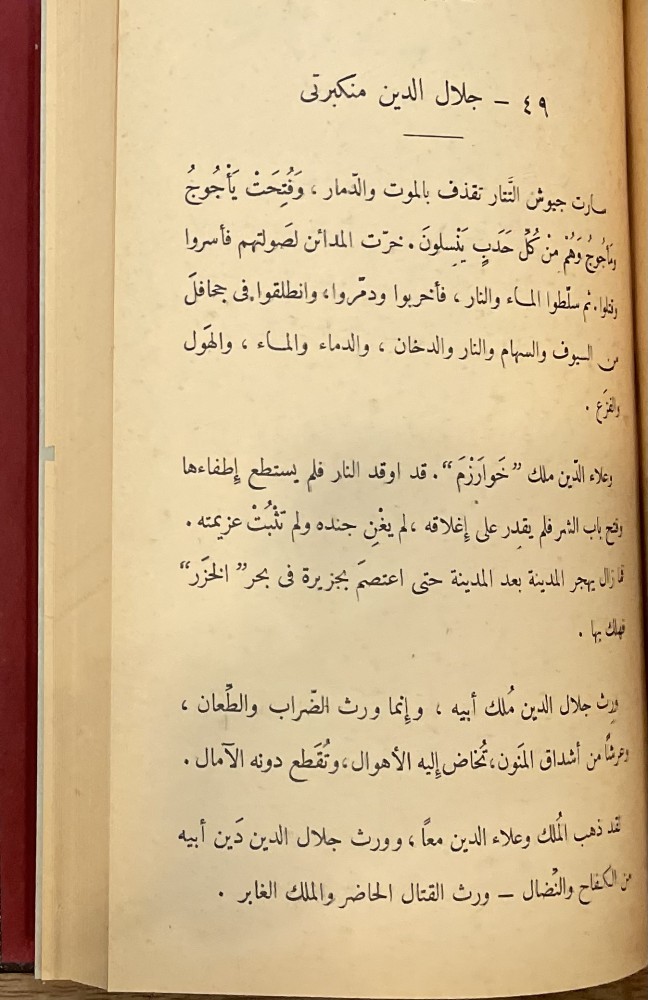 ٤٩ – جلال الدين منكبرتى
سارت جيوش التَّتار تقذف بالموت والدّمار ، وَفُتِحَتْ يَأْجُوجُ
ومَأجُوجُ وَهُمْ مِنْ كُلِّ حَدَبٍ يَنْسِلونَ . خرّت المدائن لصَولتهم فأسروا
وقتلوا . ثم سلّطوا المـاء والنار ، فأخربوا ودمّروا ، وانطلقوا فى جحافلَ
من السيوف والسهام والنار والدخان ، والدماء والمـاء ، والهَول
والفزَع .
وعلاء الدّين ملك ”خَوارَزْمَ“ . قد اوقد النار فلم يستطع إِطفاءها
وفتح باب الشر فلم يقدِر على إِغلاقه ، لم يغْنِ جنده ولم تثْبُتْ عزيمته .
فما زال يهجر المدينة بعد المدينة حتى اعتصمَ بجزيرة فى بحر ”الخَزَر“
فهلك بها .
ورِث جلال الدين مُلك أبيه ، وإِنما ورث الضّراب والطِّعان ،
وعرشًا من أشداق المَنون ، تُخاض إِليه الأهوال ، وتُقَطع دونه الآمال .
لقد ذهب المُلك وعلاء الدين معاً ، وورث جلال الدين دَين أبيه
من الكفاح والنِّضال – ورث القتال الحاضر والملك الغابر .